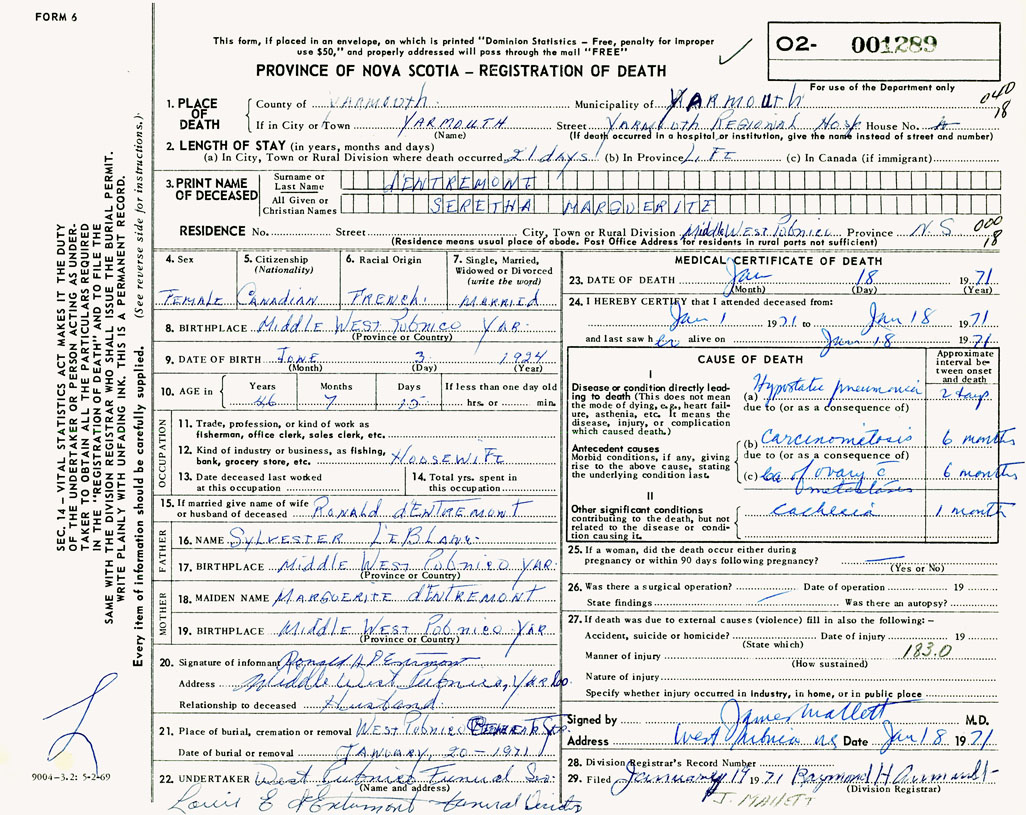 FORM 6
This form, if placed in an envelope, on which is printed "Dominion Statistics – Free, penalty for improper
use $50," and properly addressed will pass through the mail "FREE"
02- 001289
PROVINCE OF NOVA SCOTIA – REGISTRATION OF DEATH
For use of the Department only
040
18
1. PLACE OF DEATH
County of YARMOUTH Municipality of YARMOUTH
If in City or Town YARMOUTH Street YARMOUTH REGIONAL HOSP House No.
(Name) (If death occurred in a hospital or institution, give the name instead of street and number)
2. LENGTH OF STAY (in years, months and days)
(a) In City, Town or Rural Division where death occurred 21 days (b) In Province LIFE (c) In Canada (if immigrant)
3. PRINT NAME OF DECEASED
Surname or Last Name D'ENTREMONT
All Given or Christian Names SERETHA MARGUERITE
RESIDENCE No. Street City, Town or Rural Division Middle West Pubnico Province N.S
000
18
(Residence means usual place of abode. Post Office Address for residents in rural parts not sufficient)
4. Sex
FEMALE
5. Citizenship
(Nationality)
CANADIAN
6. Racial Origin
FRENCH.
7. Single, Married,
Widowed or Divorced
(write the word)
MARRIED
8. BIRTHPLACE MIDDLE WEST PUBNICO YAR.
(Province or Country)
9. DATE OF BIRTH JUNE 3 1924
(Month) (Day) (Year)
10. AGE in Years Months Days If less than one day old
46 7 15 hrs. or min.
OCCUPATION
11. Trade, profession, or kind of work as
fisherman, office clerk, sales clerk, etc.
12. Kind of industry or business, as fishing,
bank, grocery store, etc. HOUSEWIFE
13. Date deceased last worked
at this occupation
14. Total yrs. spent in
this occupation
15. If married give name of wife
or husband of deceased RONALD D'ENTREMONT
FATHER
16. NAME SYLVESTER LEBLANC
17. BIRTHPLACE MIDDLE WEST PUBNICO YAR.
(Province or Country)
MOTHER
18. MAIDEN NAME MARGUERITE D'ENTREMONT
19. BIRTHPLACE MIDDLE WEST PUBNICO YAR
(Province or Country)
20. Signature of informant Ronald H D'Entremont
Address Middle West Pubnico, Yar Co.
Relationship to deceased Husband
21. Place of burial, cremation or removal WEST PUBNICO
Date of burial or removal JANUARY, 20 – 1971
22. UNDERTAKER West Pubnico Funeral Ser.
(Name and address)
Louis E d'Entremont Funeral Director
MEDICAL CERTIFICATE OF DEATH
23. DATE OF DEATH Jan 18 1971
(Month) (Day) (Year)
24. I HEREBY CERTIFY that I attended deceased from:
Jan 1 1971 to Jan 18 1971
and last saw her alive on Jan 18 1971
CAUSE OF DEATH
Approximate
interval be-
tween onset
and death
I
Disease or condition directly lead-
ing to death (This does not mean
the mode of dying, e.g., heart fail-
ure, asthenia, etc. It means the
disease, injury, or complication
which caused death.)
(a) Hypostatic pneumonia 2 days
due to (or as a consequence of)
Antecedent causes
Morbid conditions, if any, giving
rise to the above cause, stating
the underlying condition last.
(b) Carcinomatosis 6 months
due to (or as a consequence of)
(c) Ca of ovary c 6 months
metastases
II
Other significant conditions
contributing to the death, but not
related to the disease or condi-
tion causing it.
cachexia 1 month
25. If a woman, did the death occur either during
pregnancy or within 90 days following pregnancy?
(Yes or No)
26. Was there a surgical operation? Date of operation 19
State findings Was there an autopsy?
27. If death was due to external causes (violence) fill in also the following: –
Accident, suicide or homicide? Date of injury 19
(State which)
Manner of injury 183.0
(How sustained)
Nature of injury
Specify whether injury occurred in industry, in home, or in public place
Signed by James Mallett M.D.
Address West Pubnico NS Date Jan 18 1971
28. Division Registrar's Record Number
29. Filed January 19 1971 Raymond H
(Division Registrar)
J. MALLETT
SEC. 14 – VITAL STATISTICS ACT MAKES IT THE DUTY
OF THE UNDERTAKER OR PERSON ACTING AS UNDER-
TAKER TO OBTAIN ALL THE PARTICULARS REQUIRED
IN THE "REGISTRATION OF DEATH" AND TO FILE THE
SAME WITH THE DIVISION REGISTRAR WHO SHALL ISSUE THE BURIAL PERMIT.
WRITE PLAINLY WITH UNFADING INK. THIS IS A PERMANENT RECORD.
Every item of information should be carefully supplied. (See reverse side for instructions.)
9004-3.2: 5-2-69